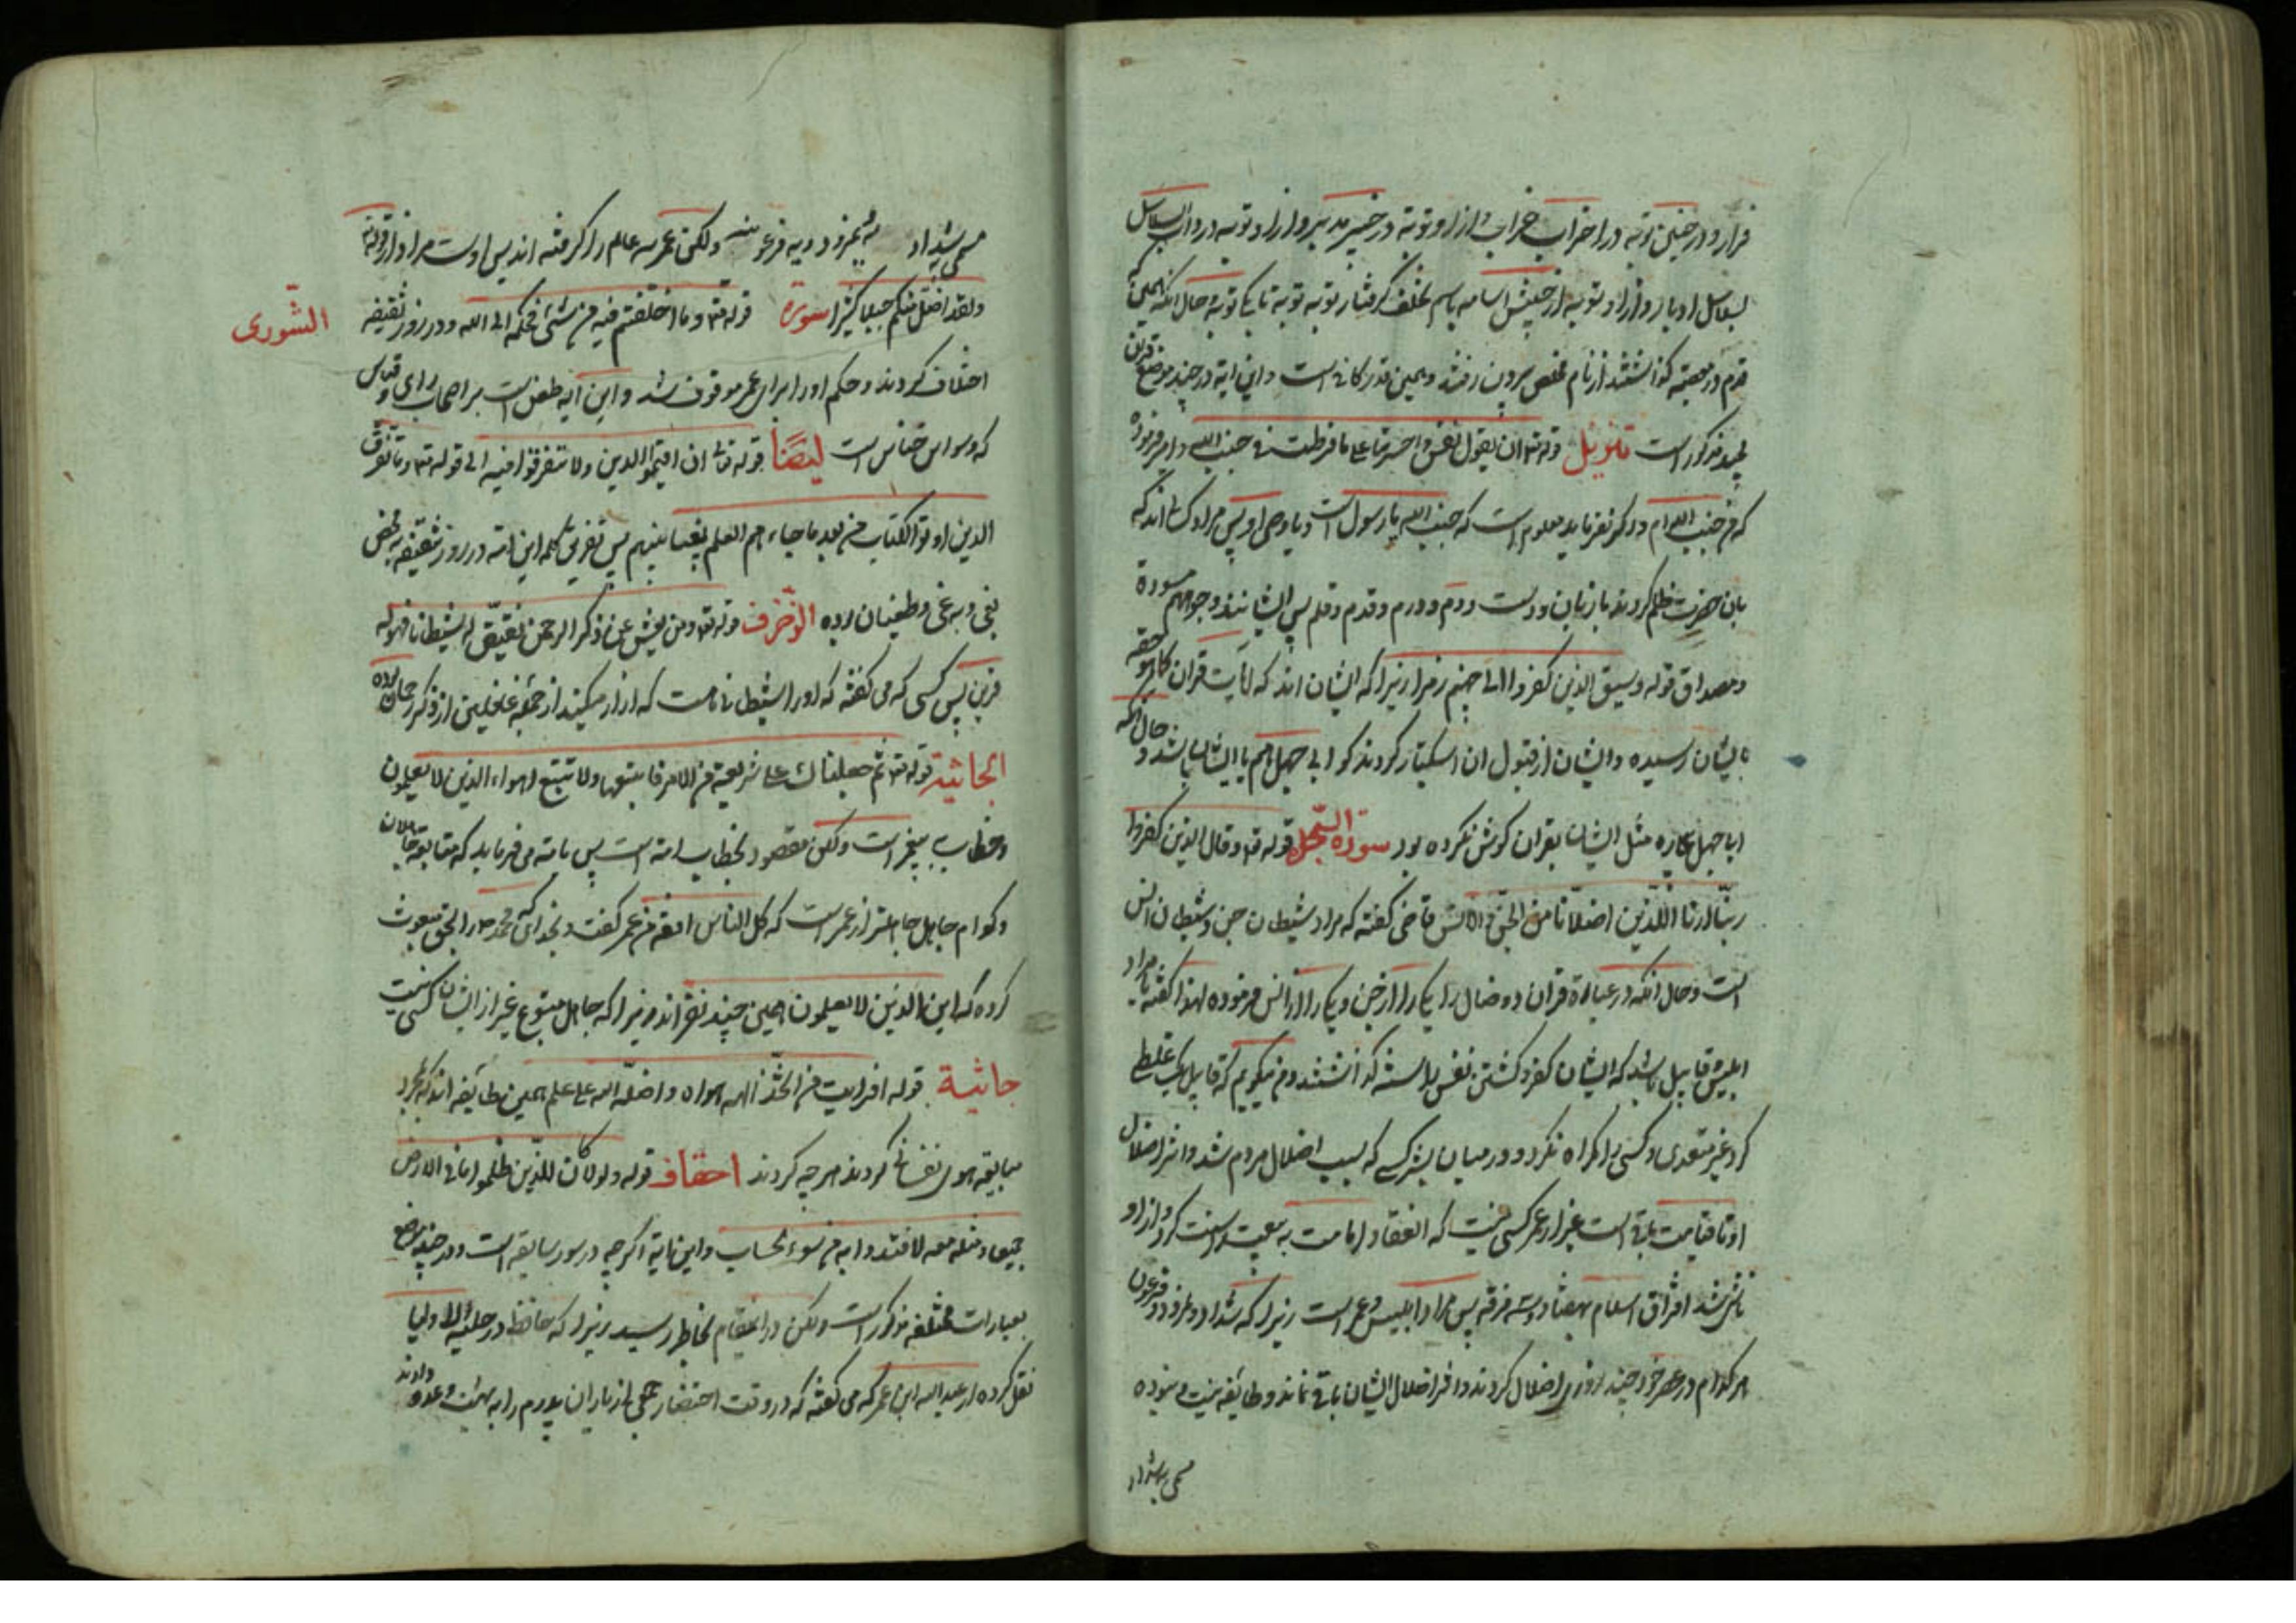 فرار و در حنین توبه در احزاب خراب و از او توبه در خیبر مدبر و از او توبه در ذات السلاسل
بسلاسل ادبار و از او توبه از جیش اسامه باسم تخلف گرفتار توبه توبه تا یکی توبه حال انکه همین که
قدم در معصیة گذاشتند از نام مخلص بیرون رفتند و همین قدر کافی است و این ایة در چند موضع قران
مجید مذکور است تنزیل قوله تع ان یقول نفس وا حسرتا علی ما فرطت فی جنب الله و امیر فرموده
که من جنب الله ام و اگر نفرماید معلوم است که جنب الله یا رسول است و یا وصی او پس مراد کسانی اند که
بان حضرت ظلم کردند با زبان و دست و دم و درم و قدم و قلم پس ایشانند وجوههم مسودة
و مصداق قوله و سیق الذین کفروا الی جهنم زمرا زیرا که ایشان اند که ایات قران کما هو حقه
بایشان رسیده و ایشان از قبول ان استکبار کردند گو ابی جهل هم با ایشان باشد و حال انکه
ابا جهل بیچاره مثل ایشان بقران گوش نکرده بود سورة السجدة قوله تع و قال الذین کفروا
ربنا ارنا اللذین اضلانا من الجن و الانس قاضی گفته که مراد شیطان جن و شیطان انس
است و حال انکه در عبارة قران دو ضال را یکی را از جن و یکی را از انس فرموده لهذا گفته یا مراد
ابلیس و قابیل باشد که ایشان کفر و کشتن نفس را سنة گذاشتند و من میگویم که قابیل یک غلطی
کرد غیر متعدی و کسی را گمراه نکرد و در میان بشر کسی که سبب اضلال مردم شد و اثر اضلال
او تا قیامت باقی است غیر از عمر کسی نیست که انعقاد امامت به بیعت او سنت کرد و از او
ناشی شد افتراق اسلام بهفتاد و سه فرقه پس مراد ابلیس و عمر است زیرا که شداد و نمرود و فرعون
هر کدام در عصر خود چند روزی اضلال کردند و اثر اضلال ایشان باقی نماند و طایفه نیست و نبوده
مسمی بشداد
مسمی بشداد یه نمرودیه و فرعونیه ولکن عمریه عالم را گرفته اند پس اوست مراد از قوله تع
و لقد اضل منکم جبلا کثیرا سورة الشوری قوله تع و ما اختلفتم فیه من شئ فحکمه الی الله و در روز ثقیفه
اختلاف کردند و حکم او را برای عمر موقوف شد و این ایه طعن است بر اصحاب رای و قیاس
که وسواس خناس است ایضا قوله تع ان اقیموا الدین و لا تتفرقوا فیه الی قوله تع و ما تفرق
الذین اوتوا الکتاب من بعد ما جاءهم العلم بغیا بینهم پس تفریق کلمه این امة در روز ثقیفه بمحض
بغی و بدعی و طغیان بوده الزخرف قوله تع و من یعش عن ذکر الرحمن نقیض له شیطانا فهو له
قرین پس کسی که می گفته که او را شیطانی است که ازار میکند از جمله غافلین از ذکر رحمان بوده
الجاثیة قوله تع ثم جعلناک علی شریعة من الامر فاتبعها و لا تتبع اهواء الذین لا یعلمون
و خطاب به پیغمبر است ولکن مقصود بخطاب امة است پس بامة می فرماید که متابعة جاهلان
و کدام جاهل جاهلتر از عمر است که کل الناس افقه من عمر گفت و بخدائی که محمد را بالحق مبعوث
کرده که این الذین لا یعلمون همین چند نفراند زیرا که جاهل متبوع غیر از ایشان کسی نیست
جاثیة قوله افرایت من اتخذ الهه هواه و اضله الله علی علم همین طایفه اند که بمجرد
متابعة هوای نفسانی کردند هر چه کردند احقاف قوله و لو ان للذین ظلموا ما فی الارض
جمیعا و مثله معه لافتدوا به من سوء الحساب و این ایة اگر چه در سور سابقه است و در چند موضع
بعبارات مختلفه مذکور است ولکن در اینمقام بخاطر رسید زیرا که حافظ در حلیة الاولیا
نقل کرده از عبد الله ابن عمر که می گفته که در وقت احتضار جمعی از یاران پدرم را به بهشت وعده دادند